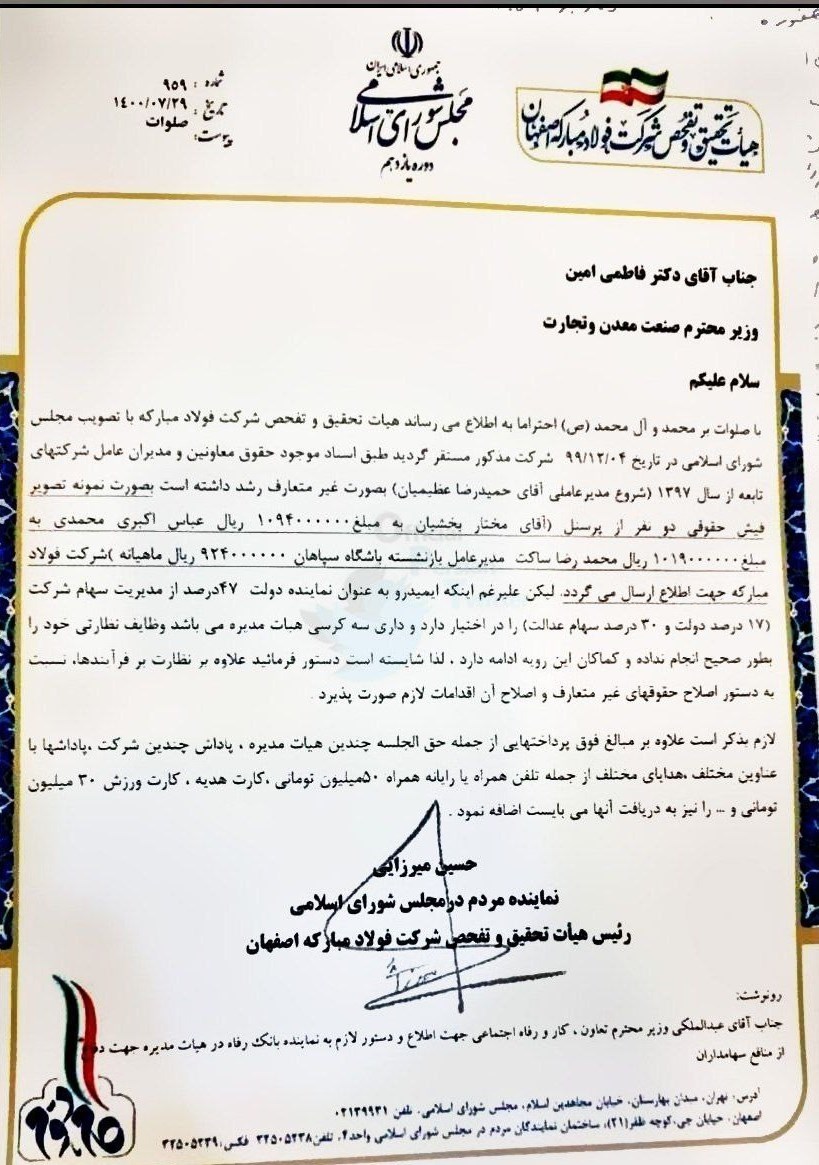 جمهوری اسلامی ایران
مجلس شورای اسلامی
دوره یازدهم
هیأت تحقیق و تفحص شرکت فولاد مبارکه اصفهان
شماره : ۹۵۹
تاریخ : ۱۴۰۰/۰۷/۲۹
پیوست: صلوات
جناب آقای دکتر فاطمی امین
وزیر محترم صنعت معدن وتجارت
سلام علیکم
با صلوات بر محمد و آل محمد (ص) احتراما به اطلاع می رساند هیات تحقیق و تفحص شرکت فولاد مبارکه با تصویب مجلس
شورای اسلامی در تاریخ ۹۹/۱۲/۰۴ شرکت مذکور مستقر گردید طبق اسناد موجود حقوق معاونین و مدیران عامل شرکتهای
تابعه از سال ۱۳۹۷ (شروع مدیرعاملی آقای حمیدرضا عظیمیان) بصورت غیر متعارف رشد داشته است بصورت نمونه تصویر
فیش حقوقی دو نفر از پرسنل (آقای مختار بخشیان به مبلغ۱۰۹۴۰۰۰۰۰۰ ریال عباس اکبری محمدی به
مبلغ۱۰۱۹۰۰۰۰۰۰ ریال محمد رضا ساکت مدیرعامل بازنشسته باشگاه سپاهان ۹۲۴۰۰۰۰۰۰ ریال ماهیانه )شرکت فولاد
مبارکه جهت اطلاع ارسال می گردد. لیکن علیرغم اینکه ایمیدرو به عنوان نماینده دولت ۴۷درصد از مدیریت سهام شرکت
(۱۷ درصد دولت و ۳۰ درصد سهام عدالت) را در اختیار دارد و داری سه کرسی هیات مدیره می باشد وظایف نظارتی خود را
بطور صحیح انجام نداده و کماکان این رویه ادامه دارد ، لذا شایسته است دستور فرمائید علاوه بر نظارت بر فرآیندها، نسبت
به دستور اصلاح حقوقهای غیر متعارف و اصلاح آن اقدامات لازم صورت پذیرد .
لازم بذکر است علاوه بر مبالغ فوق پرداختهایی از جمله حق الجلسه چندین هیات مدیره ، پاداش چندین شرکت ،پاداشها با
عناوین مختلف ،هدایای مختلف از جمله تلفن همراه یا رایانه همراه ۵۰میلیون تومانی ،کارت هدیه ، کارت ورزش ۳۰ میلیون
تومانی و ... را نیز به دریافت آنها می بایست اضافه نمود .
حسین میرزایی
نماینده مردم درمجلس شورای اسلامی
رئیس هیأت تحقیق و تفحص شرکت فولاد مبارکه اصفهان
رونوشت:
جناب آقای عبدالملکی وزیر محترم تعاون ، کار و رفاه اجتماعی جهت اطلاع و دستور لازم به نماینده بانک رفاه در هیات مدیره جهت
از منافع سهامداران
آدرس: تهران، میدان بهارستان، خیابان مجاهدین اسلام، مجلس شورای اسلامی، تلفن ۰۲۱۳۹۹۳۱
اصفهان، خیابان جی،کوچه ظفر(۲۱)، ساختمان نمایندگان مردم در مجلس شورای اسلامی واحد۴، تلفن۳۲۵۰۵۲۳۸ فکس:۳۲۵۰۵۲۳۹